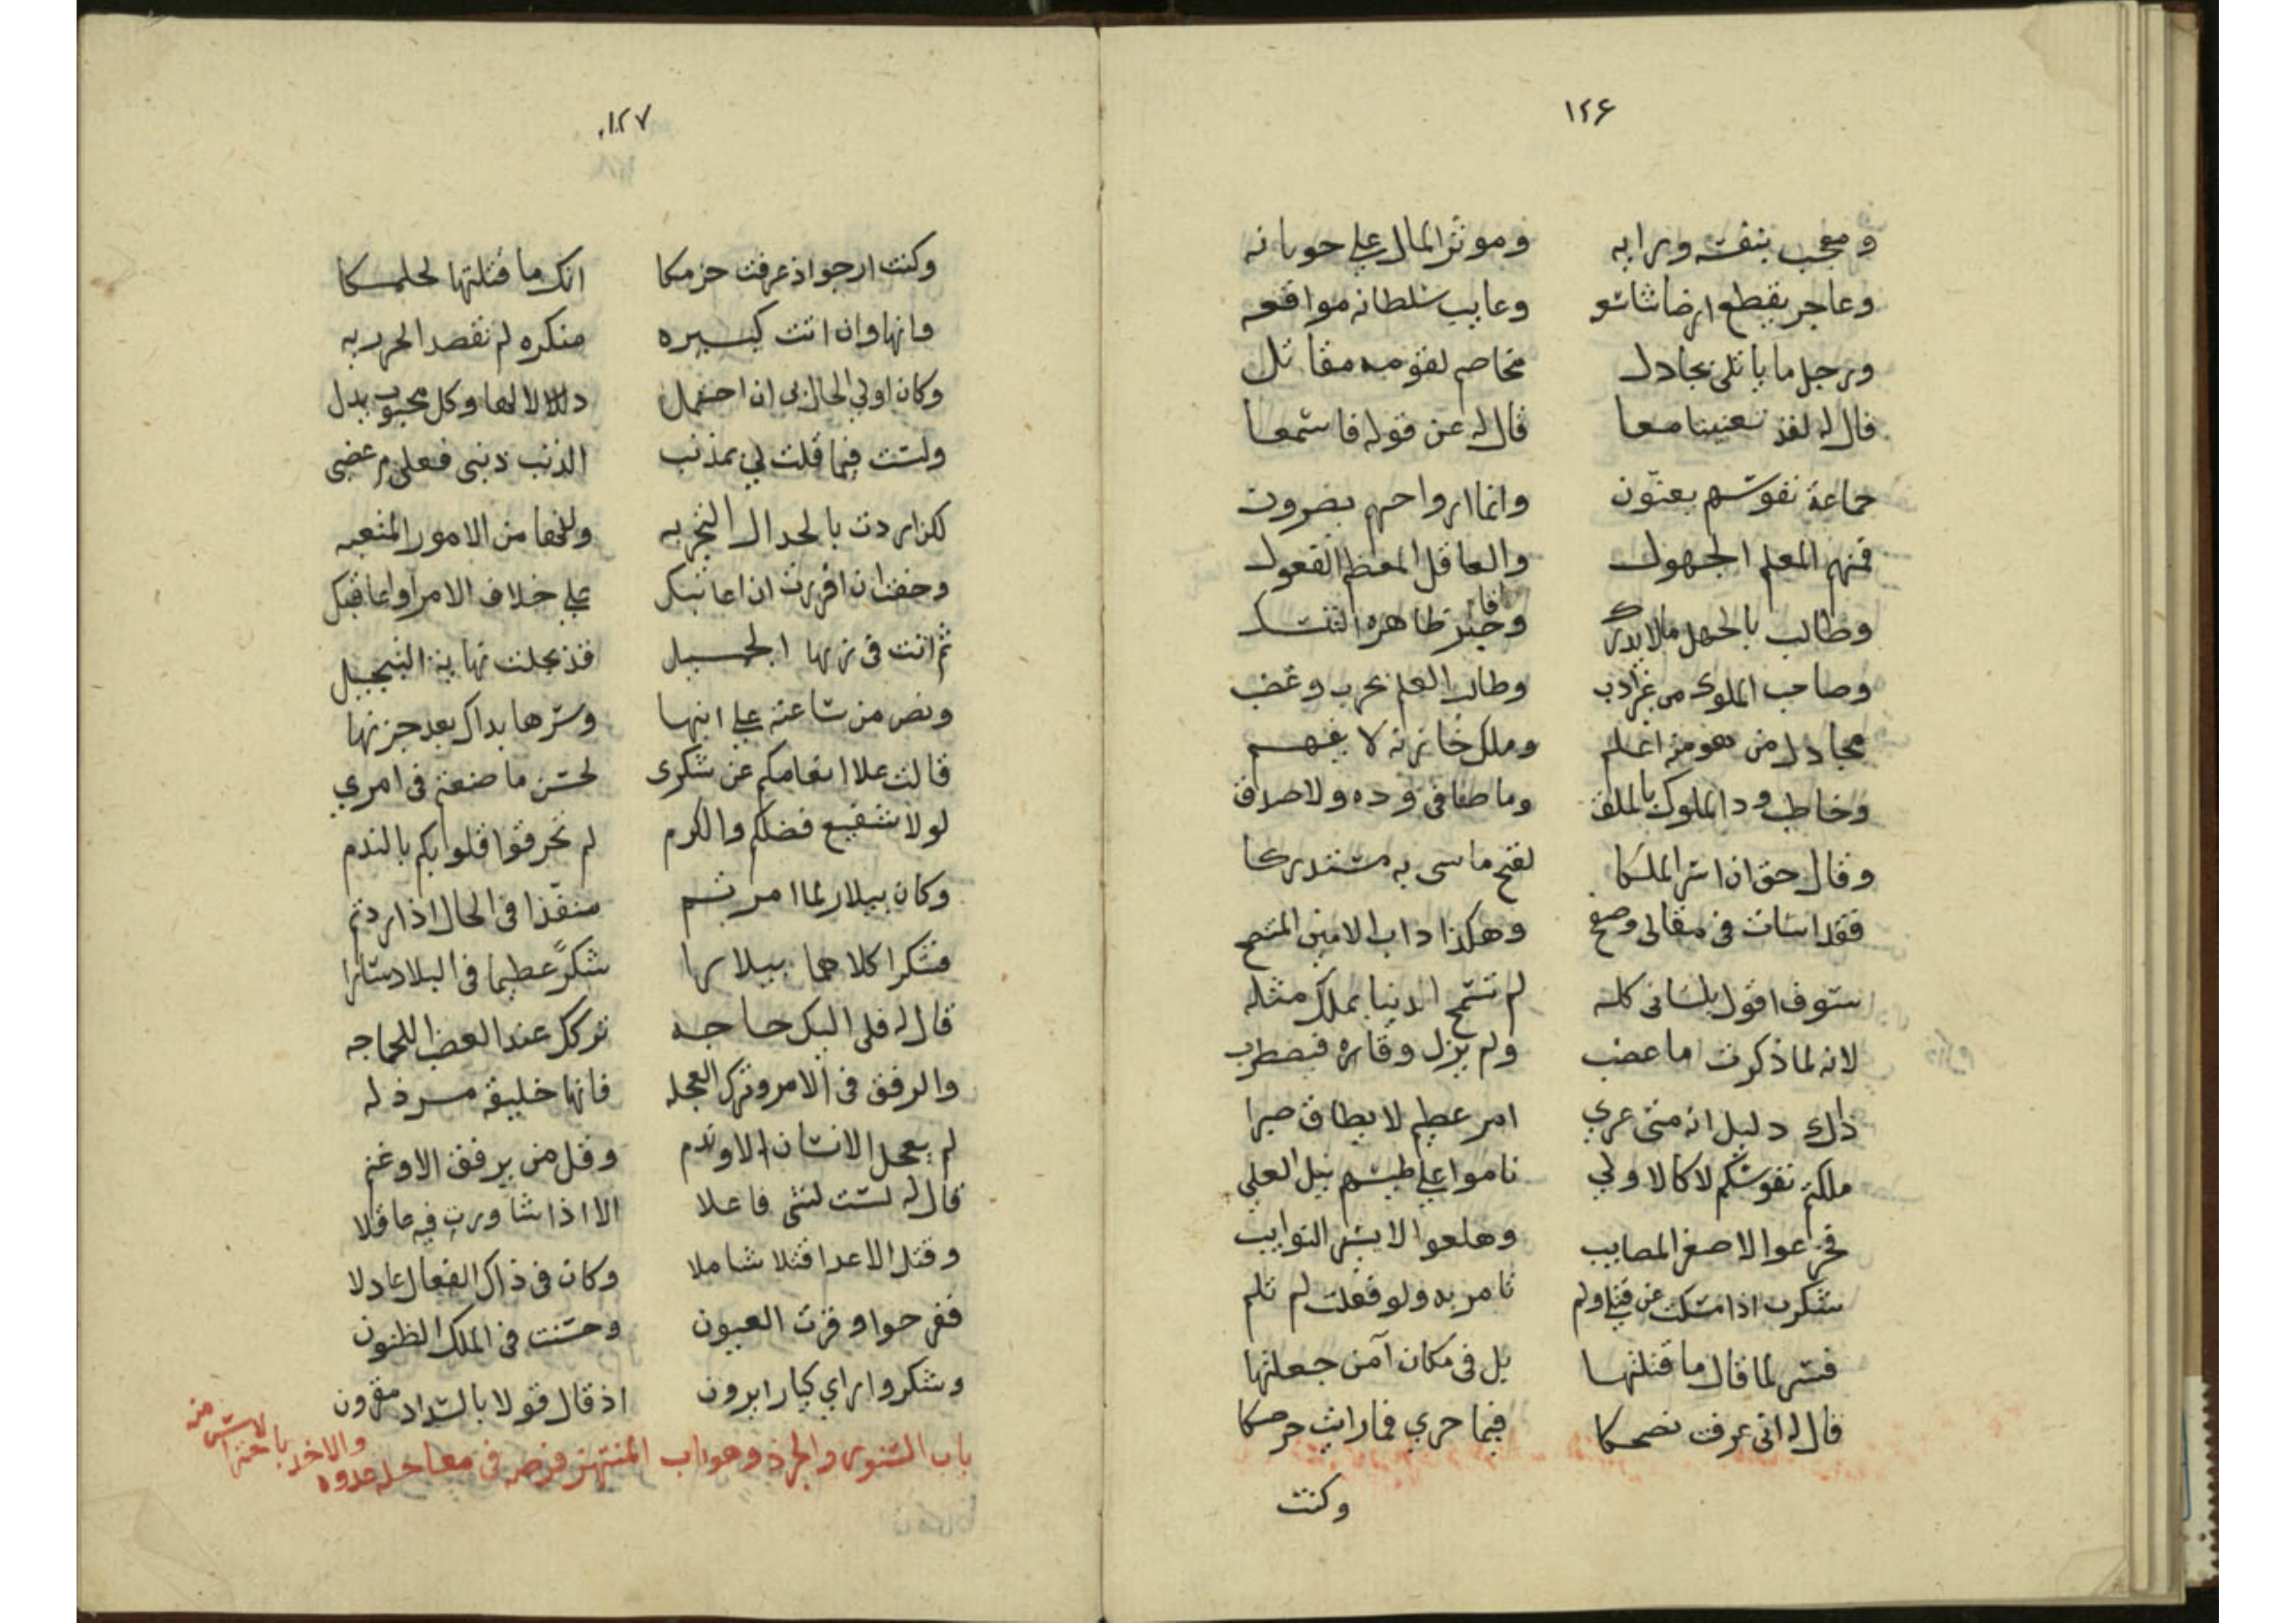 ١٢٦
ومعجب بنفسه ورايه وموثر المال على حوبائه
وعاجر يقطع ارضا شاسعه وعايب سلطانه مواقعه
ورجل ما يأتلى يجادل مخاصم لقومه مقاتل
قال له لقد تعنينا معا قال له عن قوله فاسمعا
جماعة نفوسهم يعنون وانما ارواحهم يضرون
فمنهم المعلم الجهول والعاقل المعظم القعول
وطالب بالجهل ما لا يدرك وخير ظاهره التنسك
وصاحب الملوك من غير ادب وطالب العلم بحرب وغضب
مجادل من هو منه اعلم وملك خازنه لا يفهم
وخاطب ود الملوك بالملق وما صفا فى وده ولا صدق
وقال حق ان اسر الملكا لفتح ماسى به مستدركا
فقد اسات فى مقالى وصفح وهكذا داب الامين المنصح
سوف اقول بلسانى كله لم تسمح الدنيا بملك مثله
لانه لما ذكرت ما غضب ولم يزل وقاره فيضطرب
ذلك دليل انه متى عري امر عظيم لا يطاق صبرا
ملكتم نفوسكم لا كالاولي ناموا على طيشهم نيل العلى
فجزعوا لاصغر المصايب وهلعوا لايسر النوايب
شكرت اذ امسكت عن قتلى ولم تامر به ولو فعلت لم تلم
فسر لما قال ما قتلتها بل فى مكان آمن جعلتها
قال له انى عرفت نصحكا فيما جري فما رايت حرصكا
وكنت
١٢٧
وكنت ارجو اذ عرفت حزمكا انك ما قتلتها لحلمكا
وانها وان اتت كبيره منكره لم تقصد الجريره
وكان اولي الحال بى ان احتمل دلالا لها وكل محبوب يدل
ولست فيما قلت لي بمذنب الذنب ذنبى فعلى م غضبى
لكن اردت بالجدال التجربه وللخفا من الامور المتعبه
وخفت ان اقررت ان اعاتبك على خلاف الامر او اعاقبك
ثم اتت فى زيها الجميل قد بجلت نهاية التبجيل
ونص من ساعته على ابنها وسرها بذاك بعد حزنها
قالت علا انعامكم عن شكرى لحسن ما صنعتم فى امري
لولا شفيع فضلكم والكرم لم تحرقوا قلوبكم بالندم
وكان بيلار لما امرتم منفذا فى الحال اذا ردتم
فشكرا كلاهما بيلارها شكرا عظيما فى البلاد سائرا
قال له فلى اليك حاجه تركك عند الغضب اللجاجه
والرفق فى الامر وترك العجله فانها خليقة مرذله
لم يعجل الانسان الا وندم وقل من يرفق الا وغنم
قال له لست لشى فاعلا الا اذا شاورت فيه عاقلا
وقتل الاعدا قتلا شاملا وكان فى ذاك الفعال عادلا
ففرحوا وقرت العيون وحسنت فى الملك الظنون
وشكروا راي كبارايرون اذ قال قولا بالسداد مقرون
باب السنور والجرذ وهو باب المنتهز فرصه فى مصالحه عدوه والاخذ بالاحتراس منه